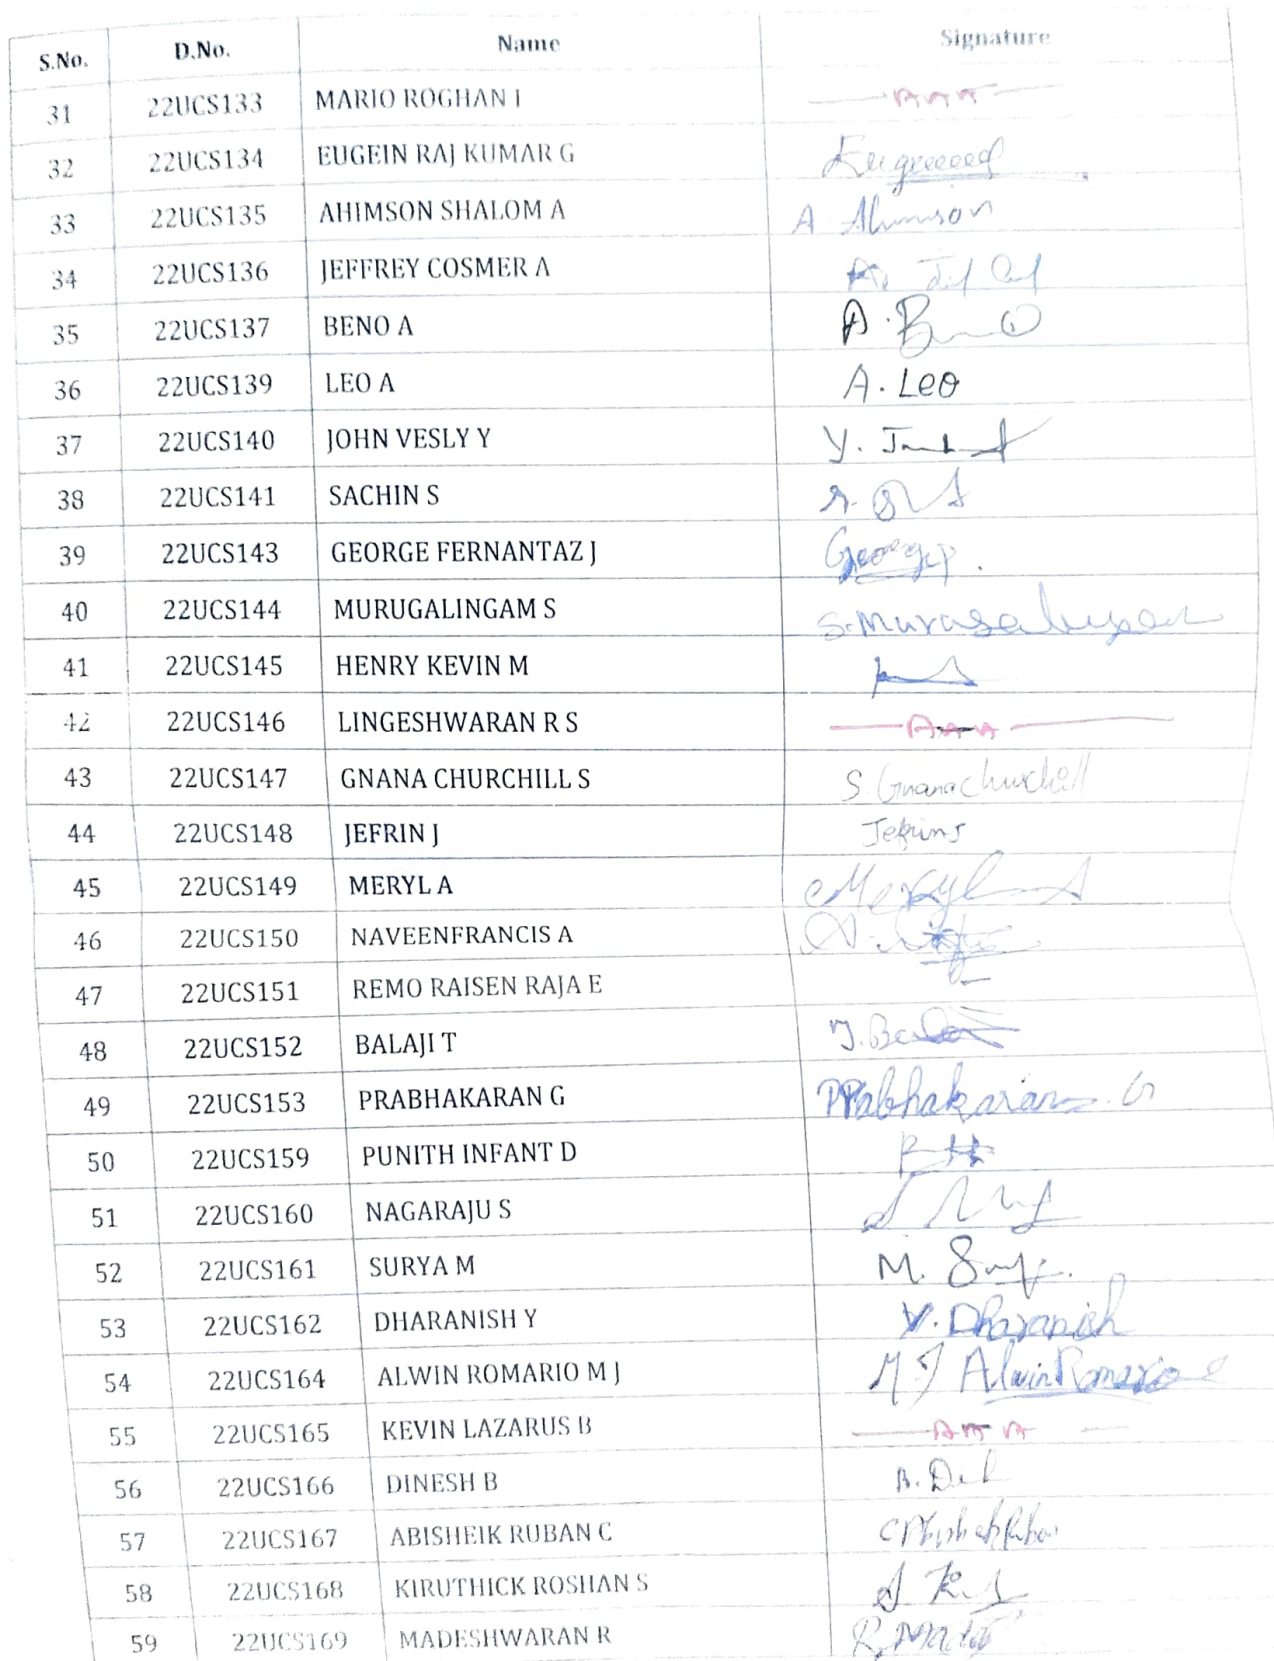 S.No. D.No. Name Signature
31 22UCS133 MARIO ROGHAN I AAA
32 22UCS134 EUGEIN RAJ KUMAR G
33 22UCS135 AHIMSON SHALOM A A Ahimson
34 22UCS136 JEFFREY COSMER A
35 22UCS137 BENO A A. Beno
36 22UCS139 LEO A A. Leo
37 22UCS140 JOHN VESLY Y Y.
38 22UCS141 SACHIN S
39 22UCS143 GEORGE FERNANTAZ J
40 22UCS144 MURUGALINGAM S
41 22UCS145 HENRY KEVIN M
42 22UCS146 LINGESHWARAN R S AAA
43 22UCS147 GNANA CHURCHILL S S Gnanachurchill
44 22UCS148 JEFRIN J
45 22UCS149 MERYL A Meryl A
46 22UCS150 NAVEENFRANCIS A
47 22UCS151 REMO RAISEN RAJA E
48 22UCS152 BALAJI T
49 22UCS153 PRABHAKARAN G Prabhakaran. G
50 22UCS159 PUNITH INFANT D
51 22UCS160 NAGARAJU S
52 22UCS161 SURYA M M.
53 22UCS162 DHARANISH Y Y. Dharanish
54 22UCS164 ALWIN ROMARIO M J M J Alwin Romario
55 22UCS165 KEVIN LAZARUS B AAA
56 22UCS166 DINESH B B.
57 22UCS167 ABISHEIK RUBAN C
58 22UCS168 KIRUTHICK ROSHAN S
59 22UCS169 MADESHWARAN R